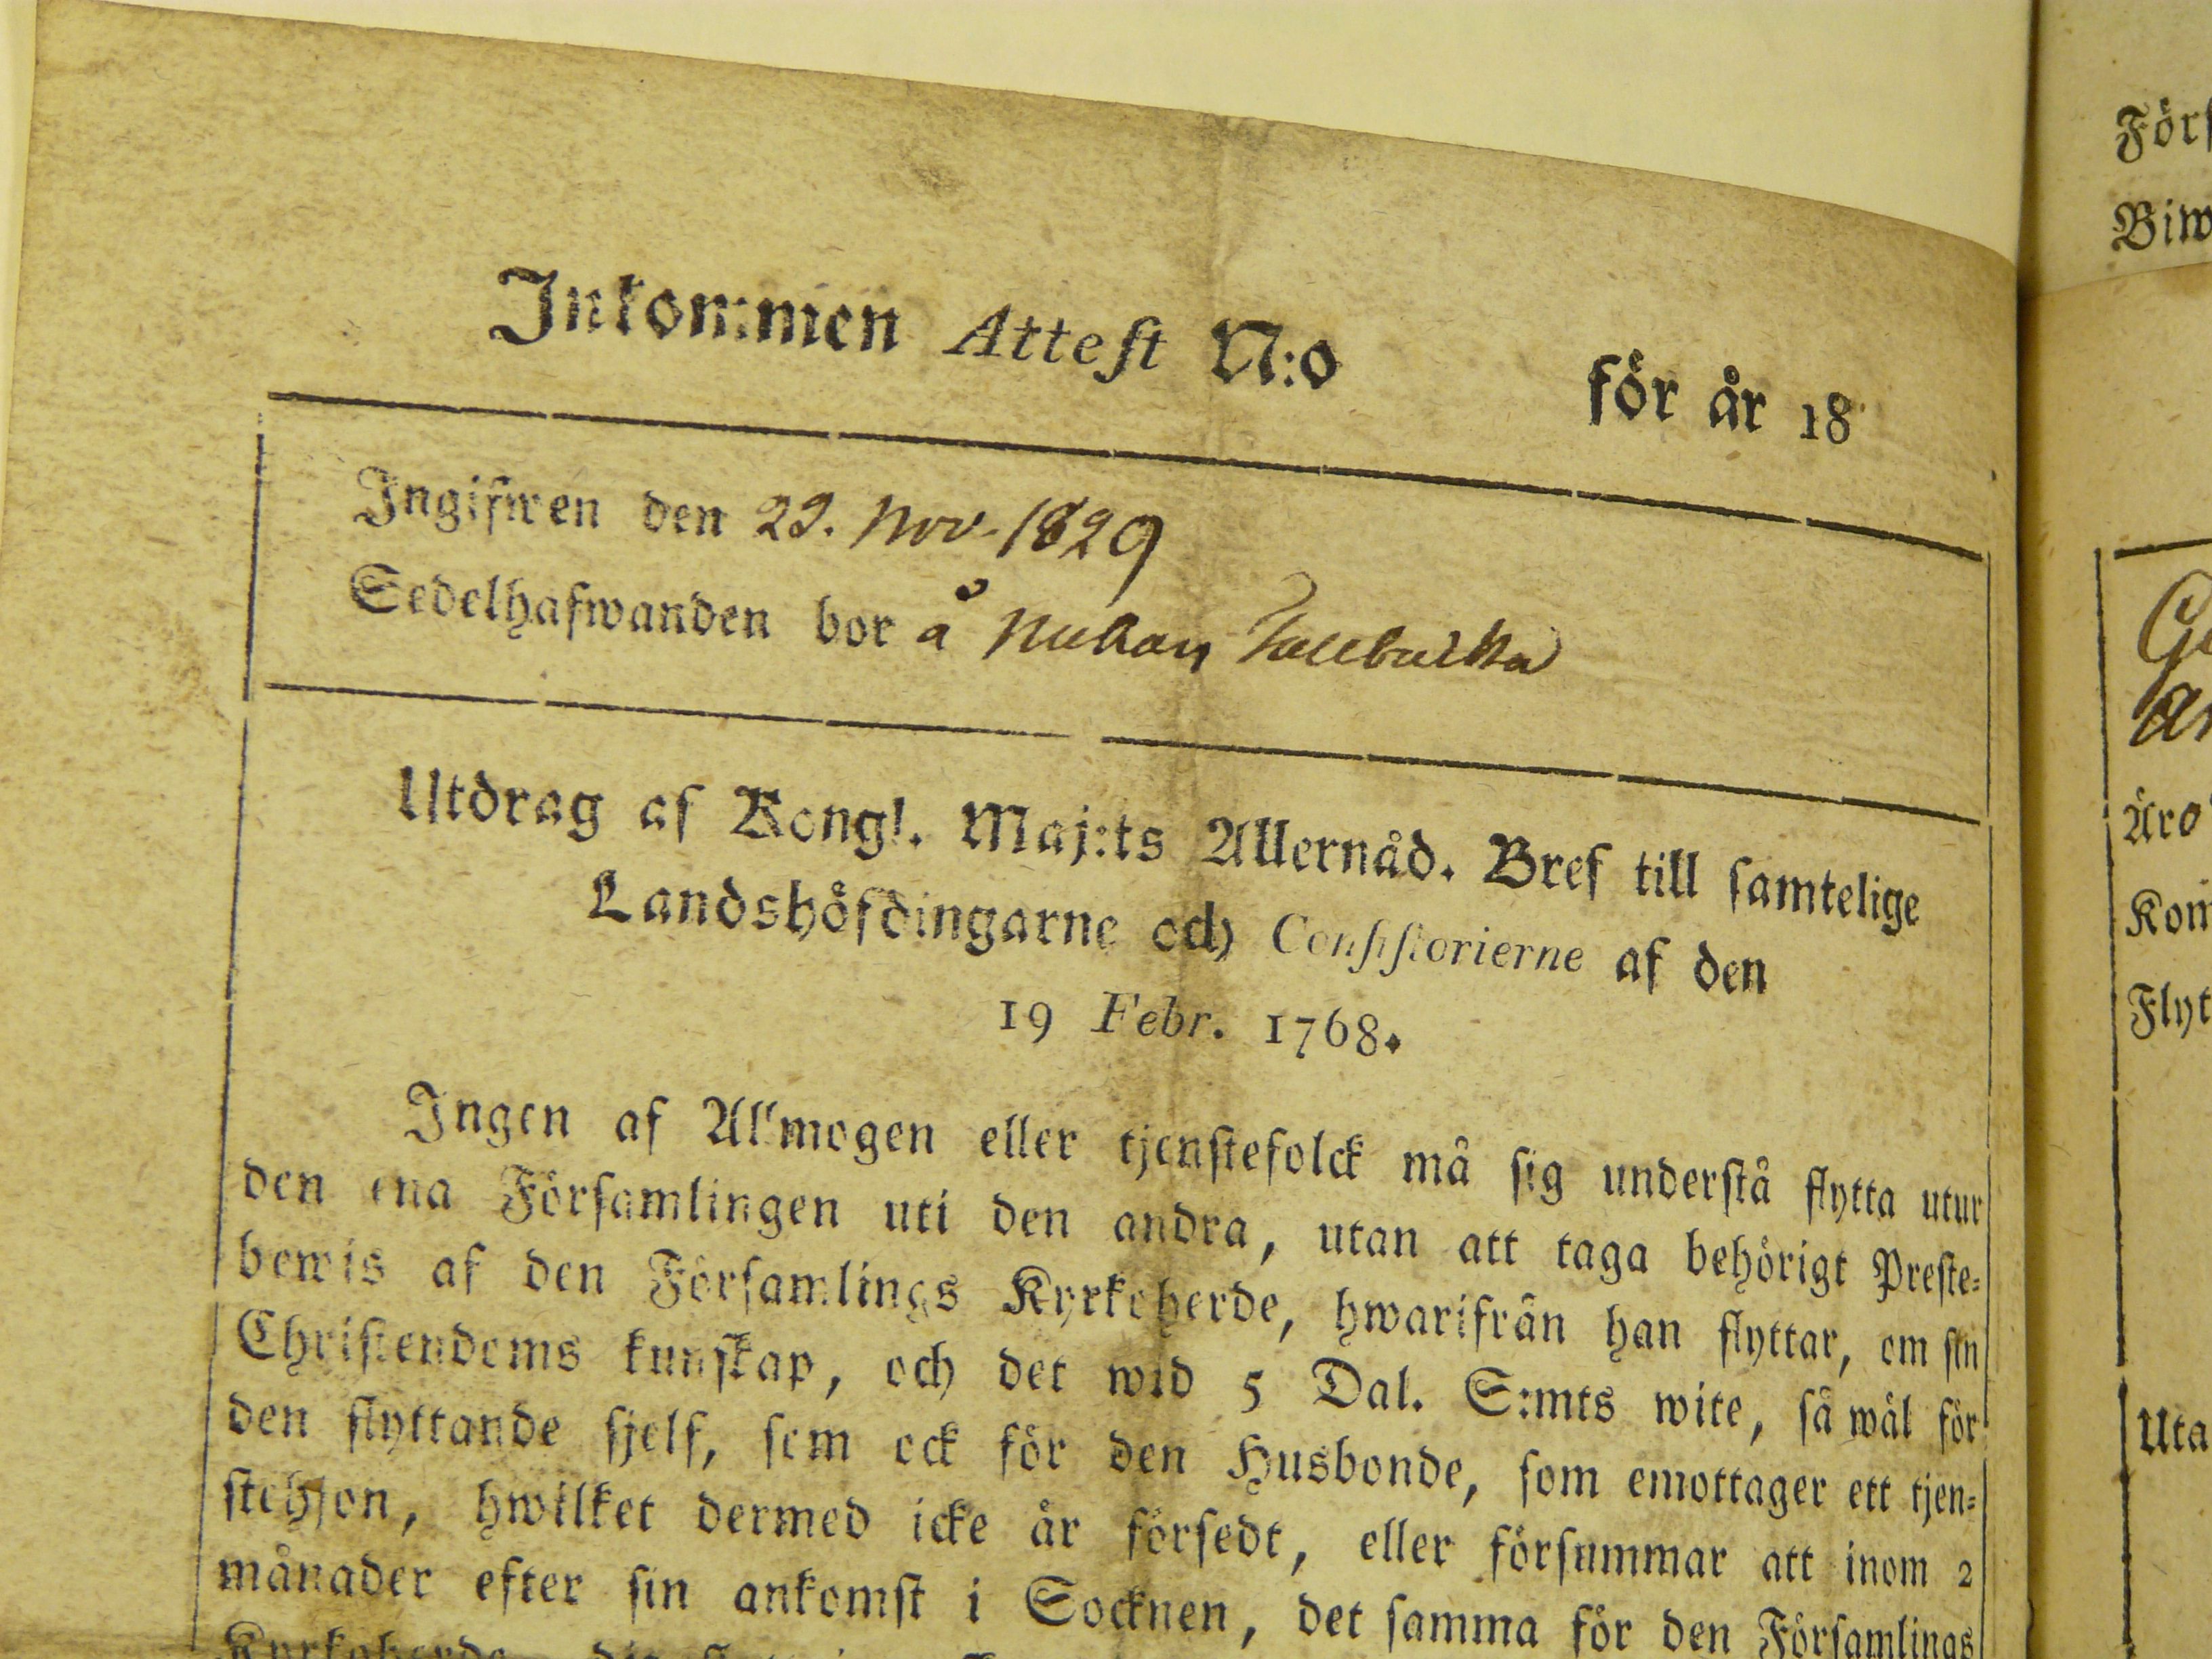 Inkommen Attest N:o för år 18
Ingifwen den 29. Nov. 1829
Sedelhafwanden bor å
Utdrag af Kongl. Maj:ts Allernåd. Bref till samtelige
Landshöfdingarne och Consistorierne af den
19 Febr. 1768.
Ingen af Allmogen eller tjenstefolck må sig understå flytta utur
den ena Församlingen uti den andra, utan att taga behörigt Preste-
bewis af den Församlings Kyrkoherde, hwarifrån han flyttar, om sin
Christendoms kunskap, och det wid 5 Dal. S:mts wite, så wäl för
den flyttande sjelf, som ock för den Husbonde, som emottager ett tjen-
stehjon, hwilket dermed icke är försedt, eller försummar att inom 2
månader efter sin ankomst i Socknen, det samma för den Församlings
Kyrkoherde
Förs
Biw
Äro
Kom
Flyt
Uta